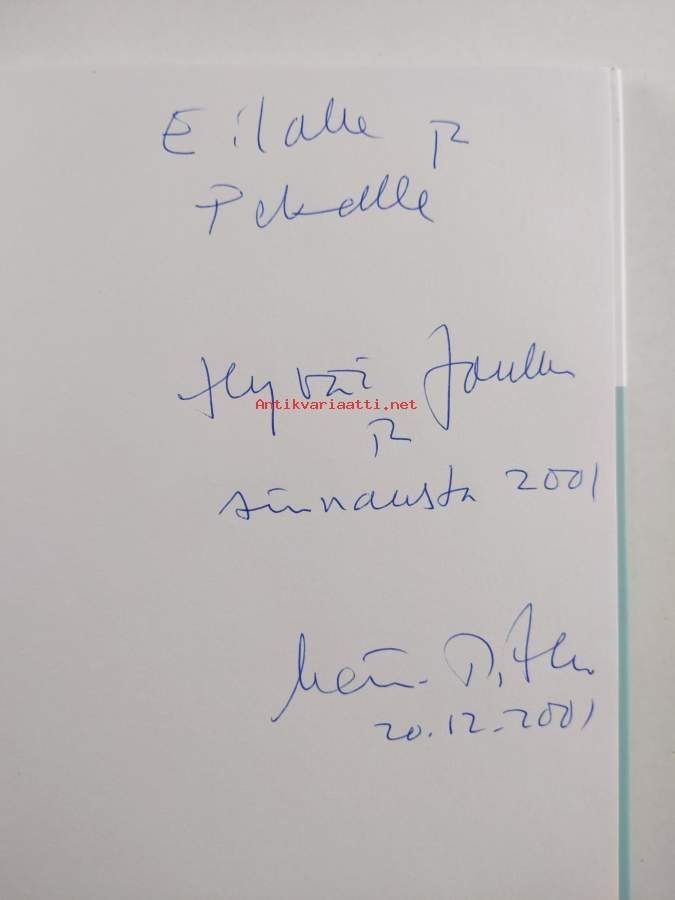 Eilalle ja
Pekalle
Hyvää Joulua
Antikvariaatti.net
ja
siunausta 2001
20.12.2001